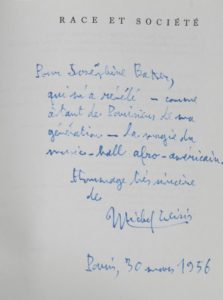 RACE ET SOCIÉTÉ
Pour Joséphine Baker,
qui m'a révélé – comme
à tant de Parisiens de ma
génération – la magie du
music-hall afro-américain.
Hommage très sincère
de
Michel Leiris
Paris, 30 mars 1956